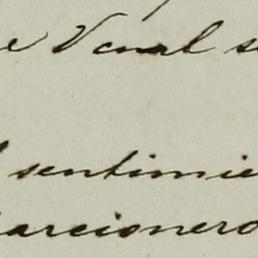 e Venal s
sentimie
arcionero